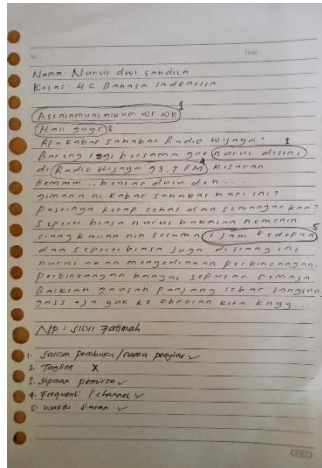 No.
Date.
Nama : Nurus dwi sandila
Kelas : 4C Bahasa Indonesia
Assalamualaikum wr wb 1
Haii guys 3
Apa kabar sahabat Radio wijaya? 1
Bareng lagi bersama gue nurus disini
di Radio wijaya 93.7 FM 4 Kisaran
Hemmm... bentar dulu deh ....
gimana ni kabar sahabat hari ini?
Pastinya tetap sehat dan semangat kan?
Seperti biasa nurus bakalan nemenin
siang kalian nih selama 1 jam kedepan 5
dan seperti biasa juga disiang ini
nurus akan menyediakan perbincangan
perbincangan hangat seputar remaja
Baiklah gausah panjang lebar langsung
gass aja yuk ke obrolan kita kuyy...
Np : Silvi Fatimah
1. Salam pembuka / nama penyiar ✓
2. Tagline X
3. Sapaan pemirsa ✓
4. Frequensi / channel ✓
5. Waktu siaran ✓